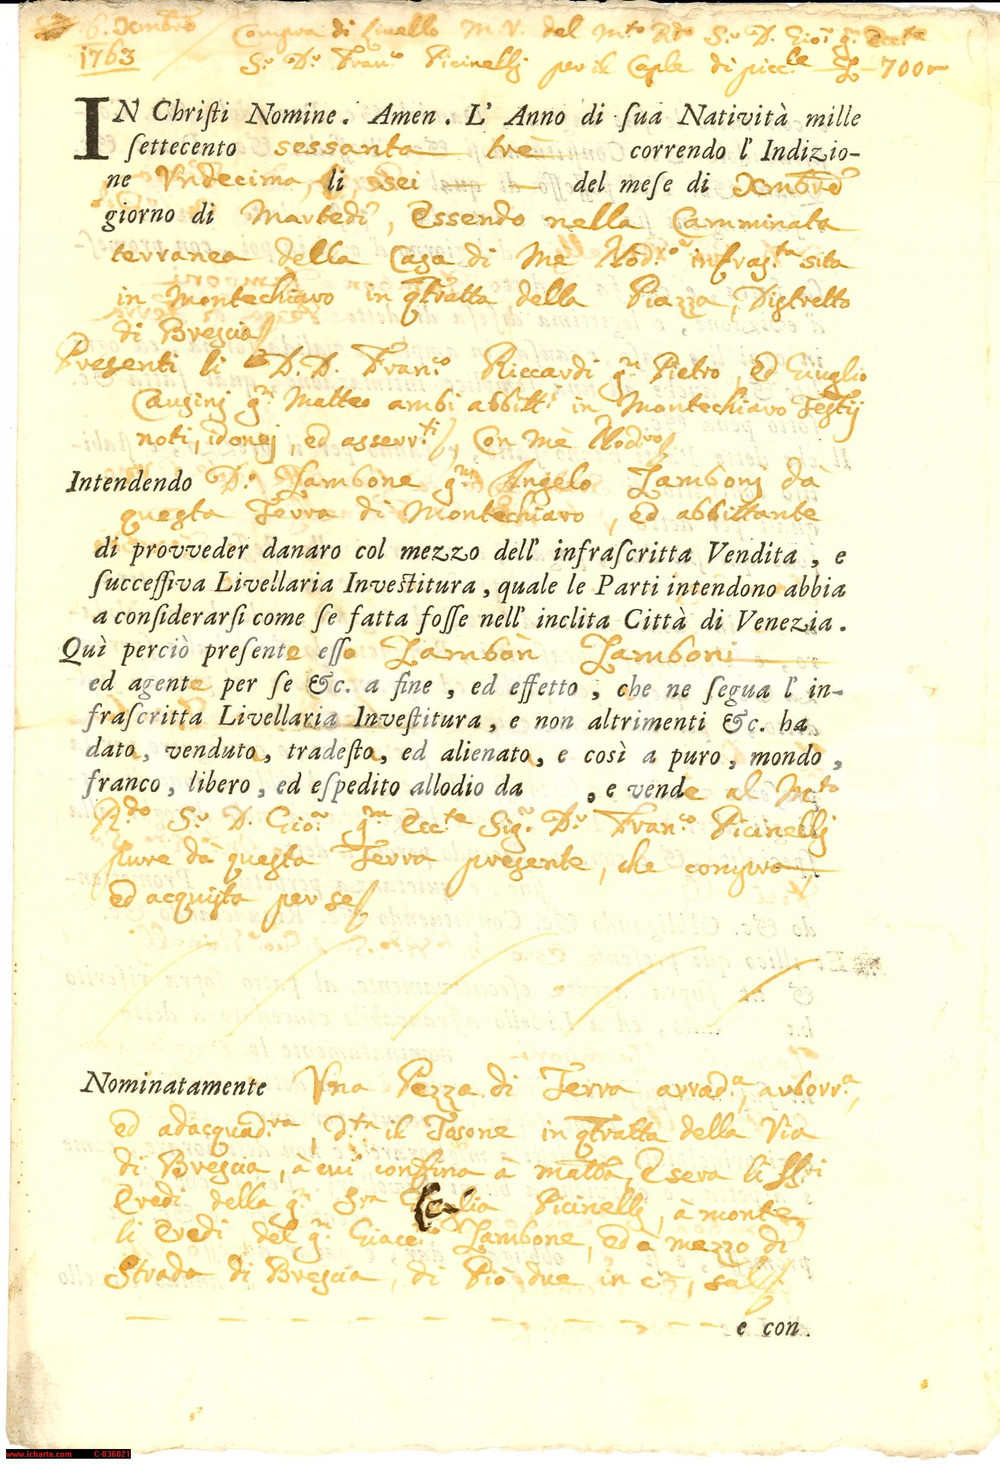 6. Xcembre Compra di Livello M. V. del Mto Rdo Sr D. Gio: qm Eccte
1763 Sr Dr Franco Picinelli per il Caple di picc.le £ 700
IN Christi Nomine. Amen. L' Anno di sua Natività mille
settecento sessanta trè correndo l' Indizio-
ne Undecima, li sei del mese di Xmbre
giorno di Martedì, Essendo nella Camminata
terranea della Casa di Me Nodro infrasta sita
in Montechiaro in qtratta della Piazza, Distretto
di Brescia
Presenti li D.D. Franco Riccardi qm Pietro, ed Giuglio
qm Matteo ambi abbitti in Montechiaro Testij
noti, idonej, ed asserrti, con Mè Nodro
Intendendo Dr Zambone qm Angelo Zambonj dà
questa Terra di Montechiaro, ed abbittante
di provveder danaro col mezzo dell' infrascritta Vendita, e
successiva Livellaria Investitura, quale le Parti intendono abbia
a considerarsi come se fatta fosse nell' inclita Città di Venezia.
Quì perciò presente esso Zambon Zamboni
ed agente per se &c. a fine, ed effetto, che ne segua l' in-
frascritta Livellaria Investitura, e non altrimenti &c. ha
dato, venduto, tradesto, ed alienato, e così a puro, mondo,
franco, libero, ed espedito allodio da , e vende al Mto
Rdo Sr D. Gio: qm Eccte Sigr Dr Franco Picinellj
pure dà questa Terra presente, che compra
ed acquista per se
Nominatamente Una Pezza di Terra arrada, arborra,
ed adacquadra, Dta il Tasone in qtratta della Via
di Brescia, à cui confina à mattna, e sera li SSri
Eredi della qm Sra Picinelli, à monte
li Eredi del qm Giacmo Zambone, ed à mezzo dì
Strada di Brescia, di Piò due in ca, sal
e con.
www.icharta.com C-036021